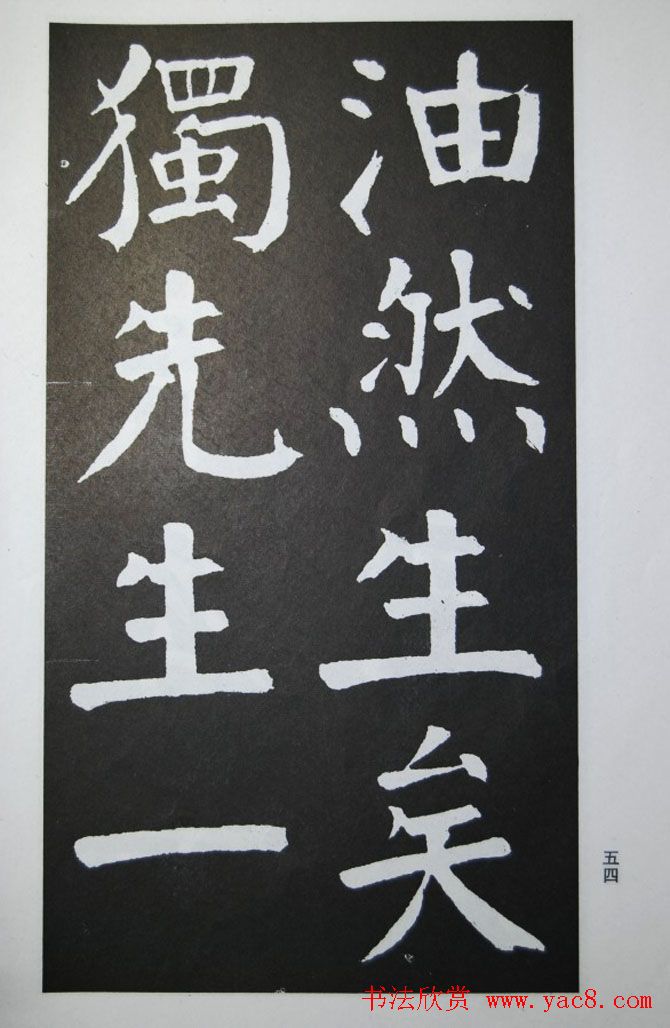 油然生矣
獨先生一
五四
书法欣赏 www.yac8.com